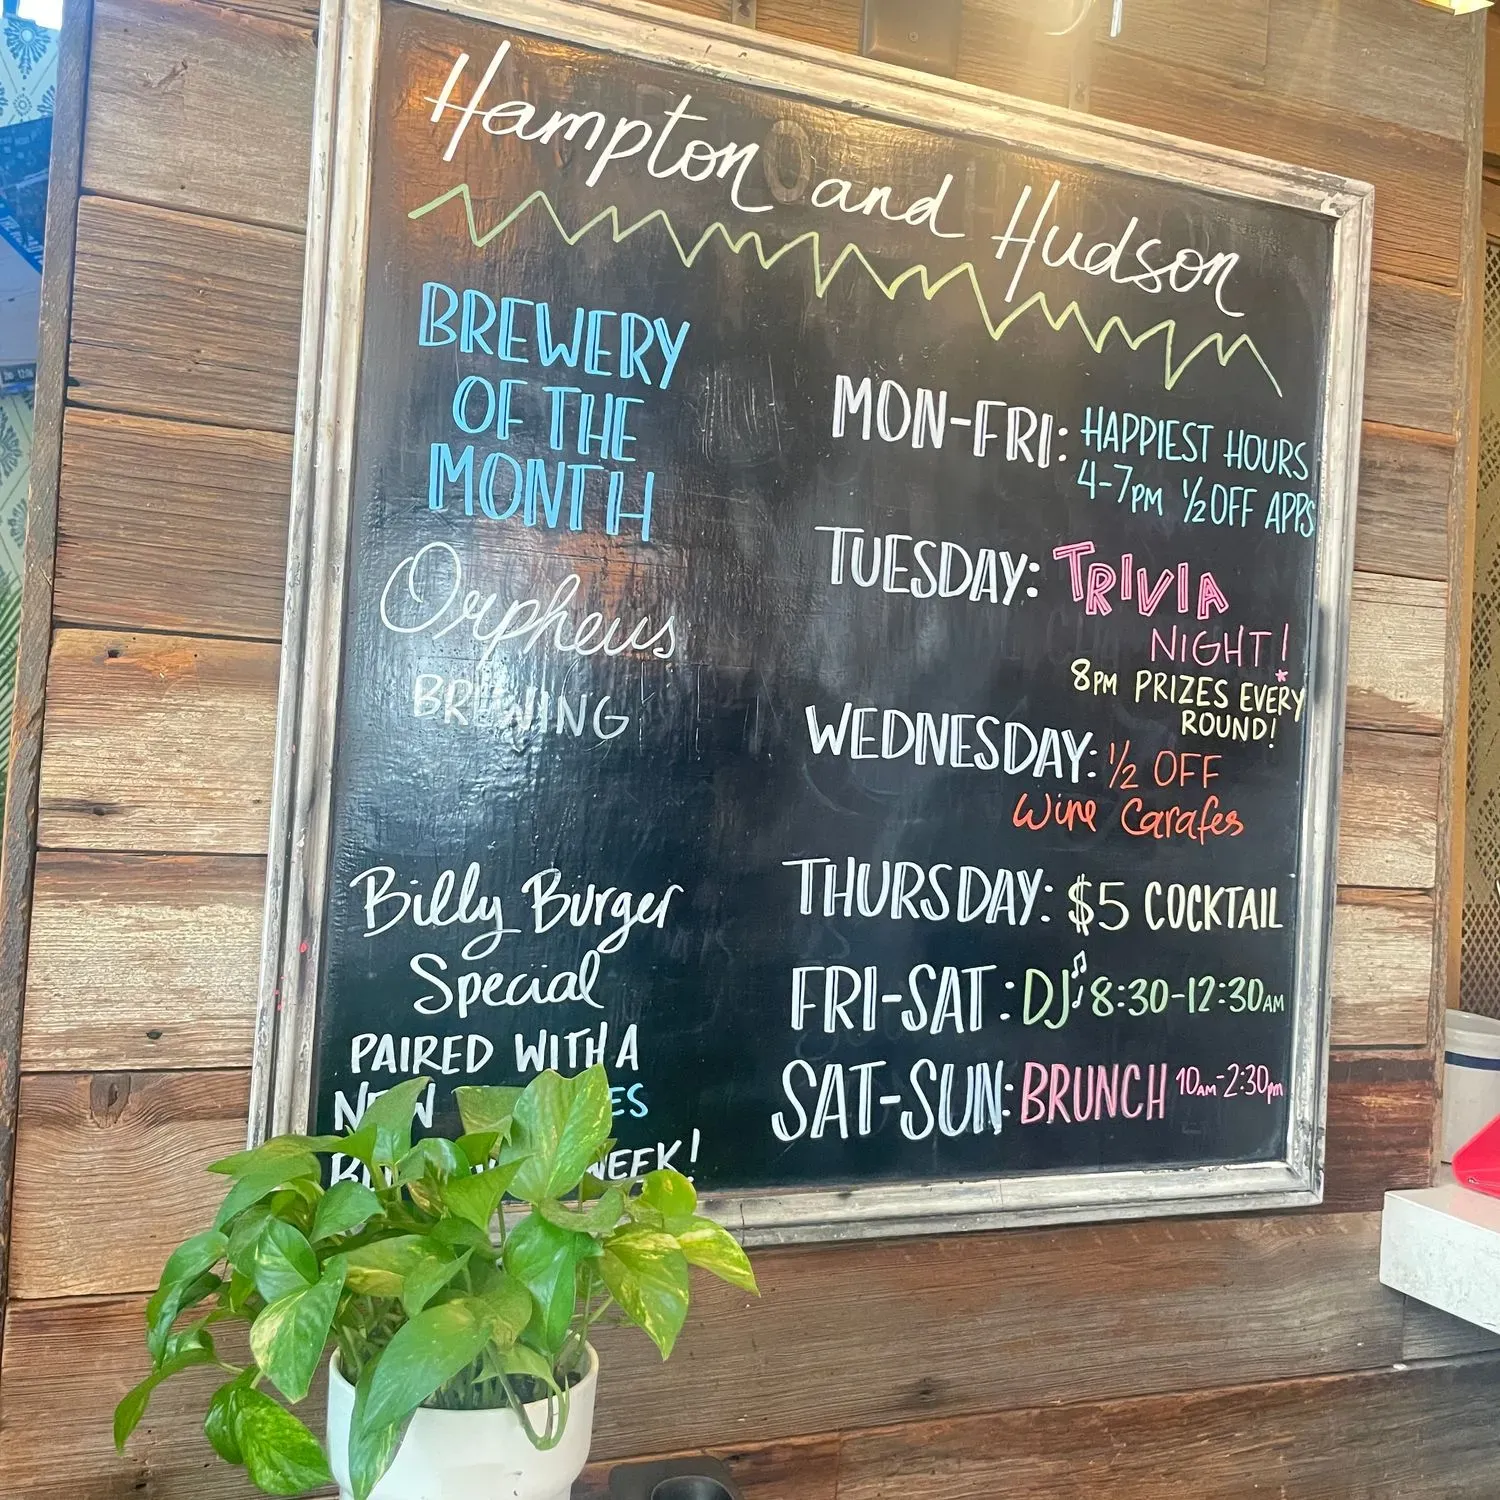 Hampton and Hudson
BREWERY
OF THE
MONTH
Orpheus
BREWING
Billy Burger
Special
PAIRED WITH A
NEW
WEEK!
MON-FRI: HAPPIEST HOURS
4-7PM ½ OFF APPS
TUESDAY: TRIVIA
NIGHT!
8PM PRIZES EVERY
ROUND!
WEDNESDAY: ½ OFF
Wine Carafes
THURSDAY: $5 COCKTAIL
FRI-SAT: DJ 8:30-12:30AM
SAT-SUN: BRUNCH 10AM-2:30pm